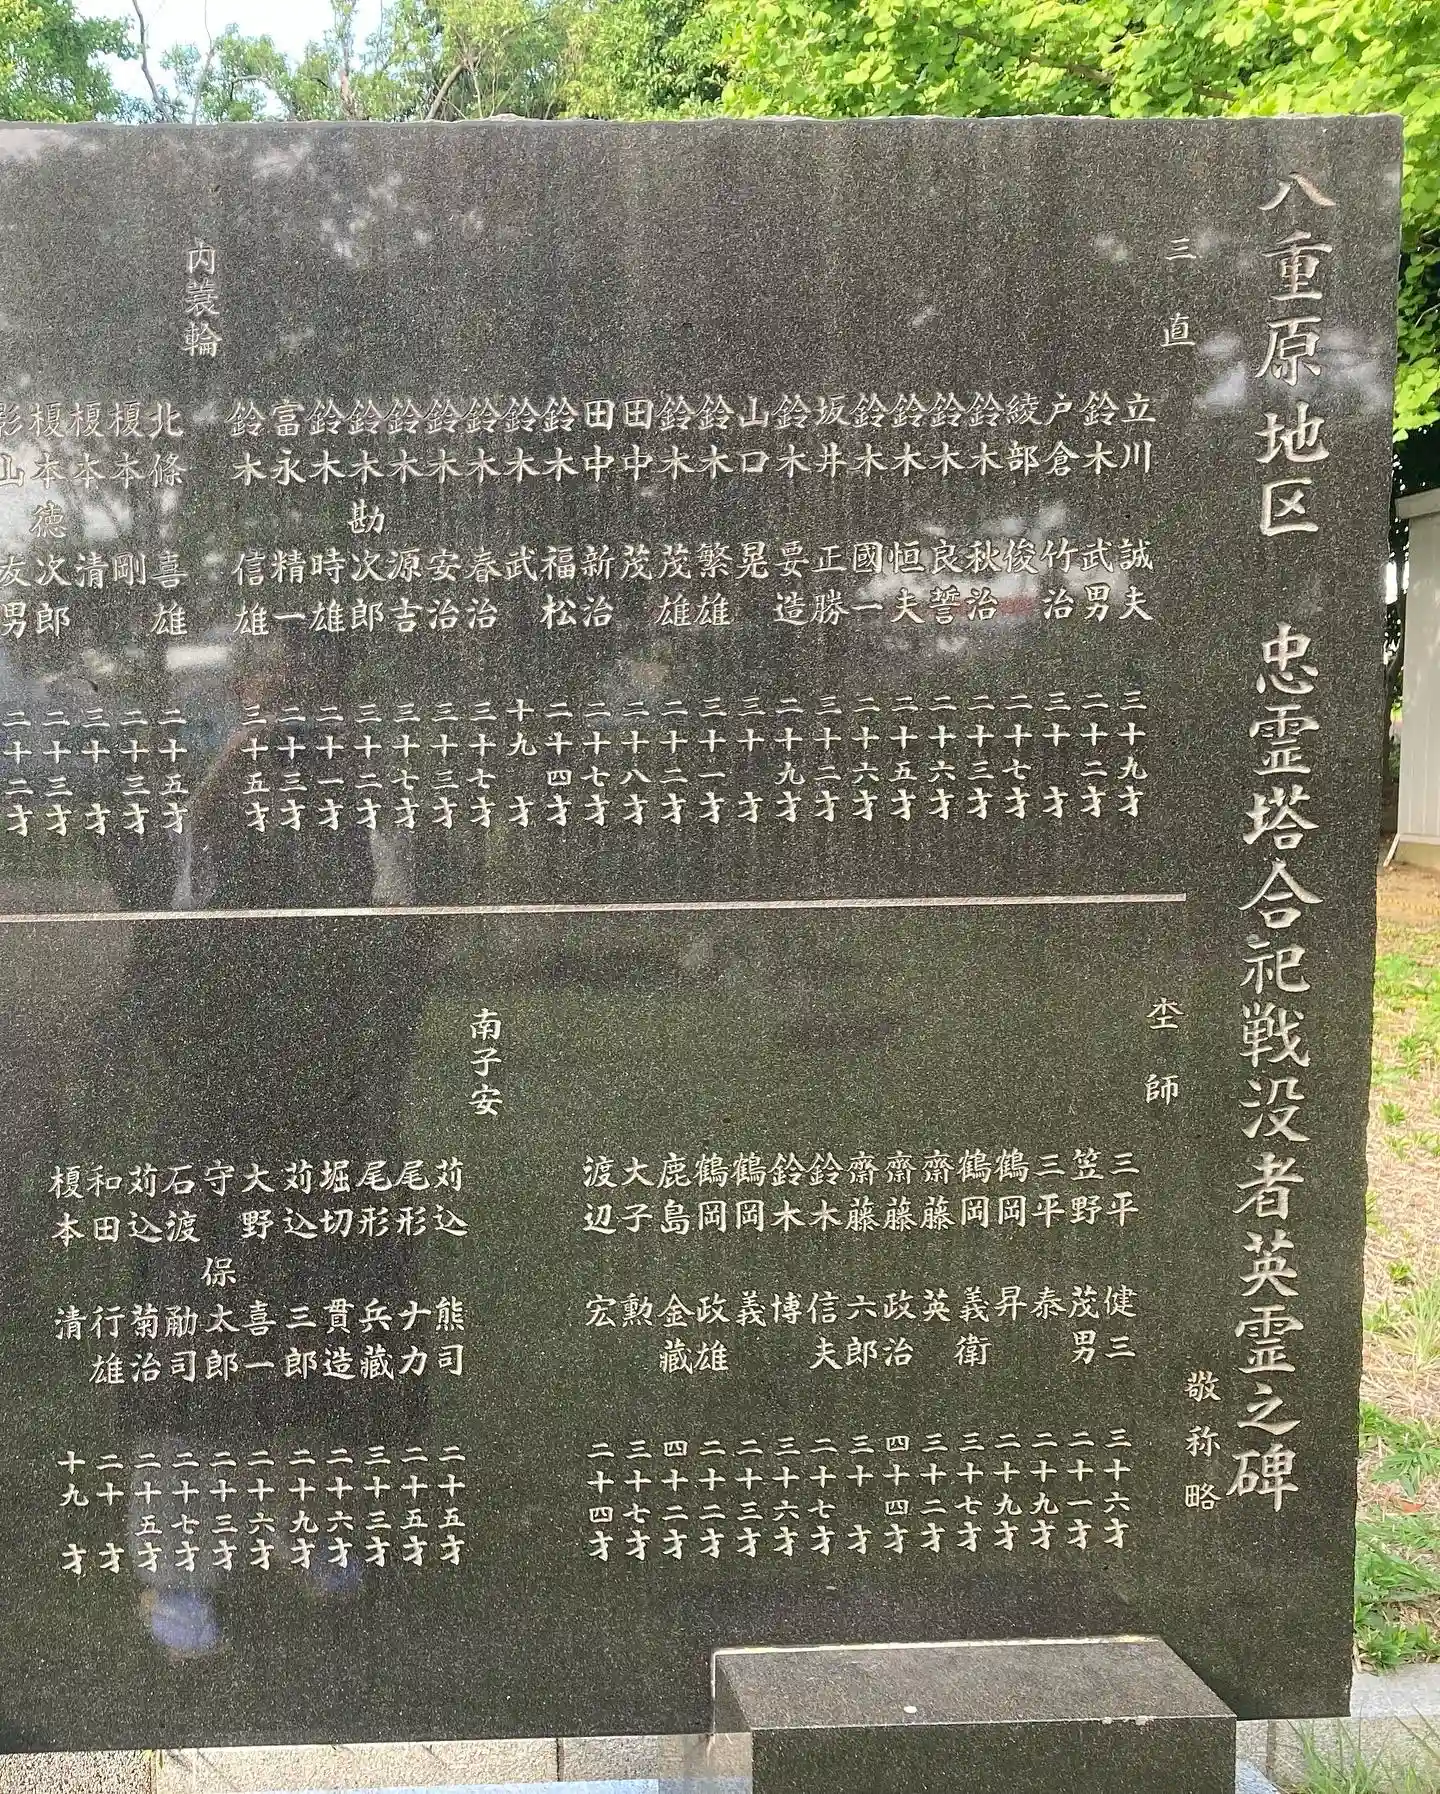 八重原地区 忠霊塔合祀戦没者英霊之碑
敬称略
三直
立川 誠夫 三十九才
鈴木 武男 二十二才
戸倉 竹治 三十才
綾部 俊 二十七才
鈴木 秋治 二十三才
鈴木 良誓 二十六才
鈴木 恒夫 二十五才
鈴木 國一 二十六才
坂井 正勝 三十二才
鈴木 要造 二十九才
山口 晃 三十才
鈴木 繁雄 三十一才
鈴木 茂雄 二十二才
田中 茂 二十八才
田中 新治 二十七才
鈴木 福松 二十四才
鈴木 武 十九才
鈴木 春治 三十七才
鈴木 安治 三十三才
鈴木 源吉 三十七才
鈴木 勘次郎 三十二才
鈴木 時雄 二十一才
富永 精一 二十三才
鈴木 信雄 三十五才
内蓑輪
北條 喜雄 二十五才
榎本 剛 二十三才
榎本 清 三十才
榎本 徳次郎 二十三才
影山 友男 二十二才
杢師
三平 健三 三十六才
笠野 茂男 二十一才
三平 泰 二十九才
鶴岡 昇 二十九才
鶴岡 義衛 三十七才
齋藤 英 三十二才
齋藤 政治 四十四才
齋藤 六郎 三十才
鈴木 信夫 二十七才
鈴木 博 三十六才
鶴岡 義 二十三才
鶴岡 政雄 二十二才
鹿島 金藏 四十二才
大子 勲 三十七才
渡辺 宏 二十四才
南子安
苅込 熊司 二十五才
尾形 ナカ 二十五才
尾形 兵藏 三十三才
堀切 貫造 二十六才
苅込 三郎 二十九才
大野 喜一 二十六才
守 保太郎 二十三才
石渡 勈司 二十七才
苅込 菊治 二十五才
和田 行雄 二十才
榎本 清 十九才